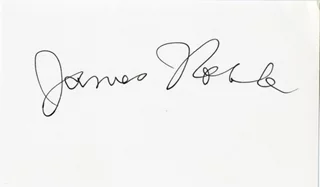 James Noble